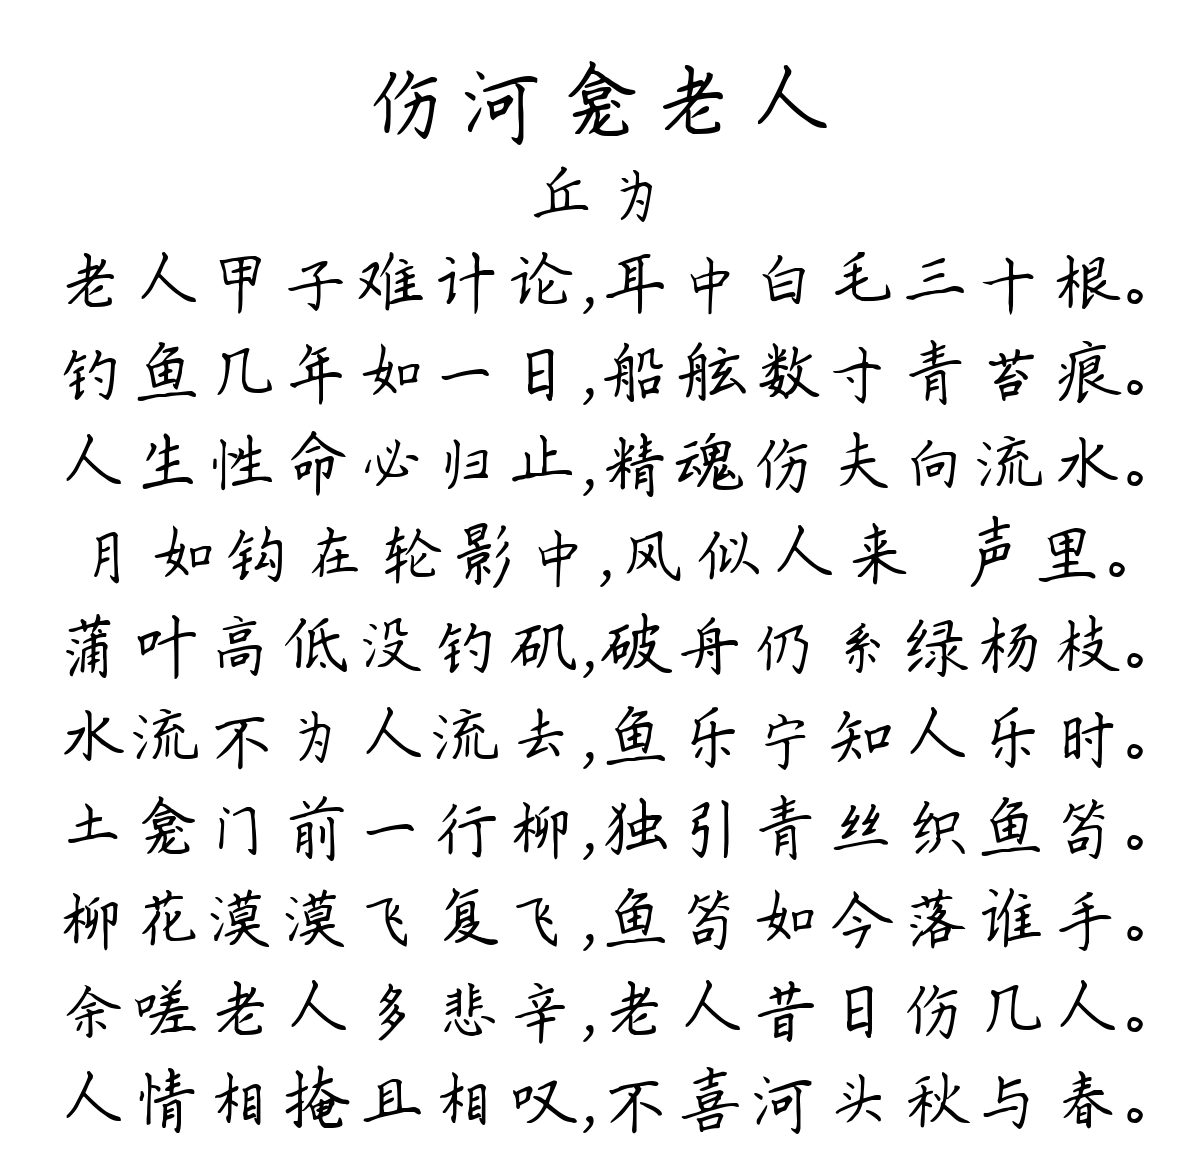 伤河龛老人
丘为
老人甲子难计论,耳中白毛三十根。
钓鱼几年如一日,船舷数寸青苔痕。
人生性命必归止,精魂伤夫向流水。
月如钩在轮影中,风似人来 声里。
蒲叶高低没钓矶,破舟仍系绿杨枝。
水流不为人流去,鱼乐宁知人乐时。
土龛门前一行柳,独引青丝织鱼笱。
柳花漠漠飞复飞,鱼笱如今落谁手。
余嗟老人多悲辛,老人昔日伤几人。
人情相掩且相叹,不喜河头秋与春。